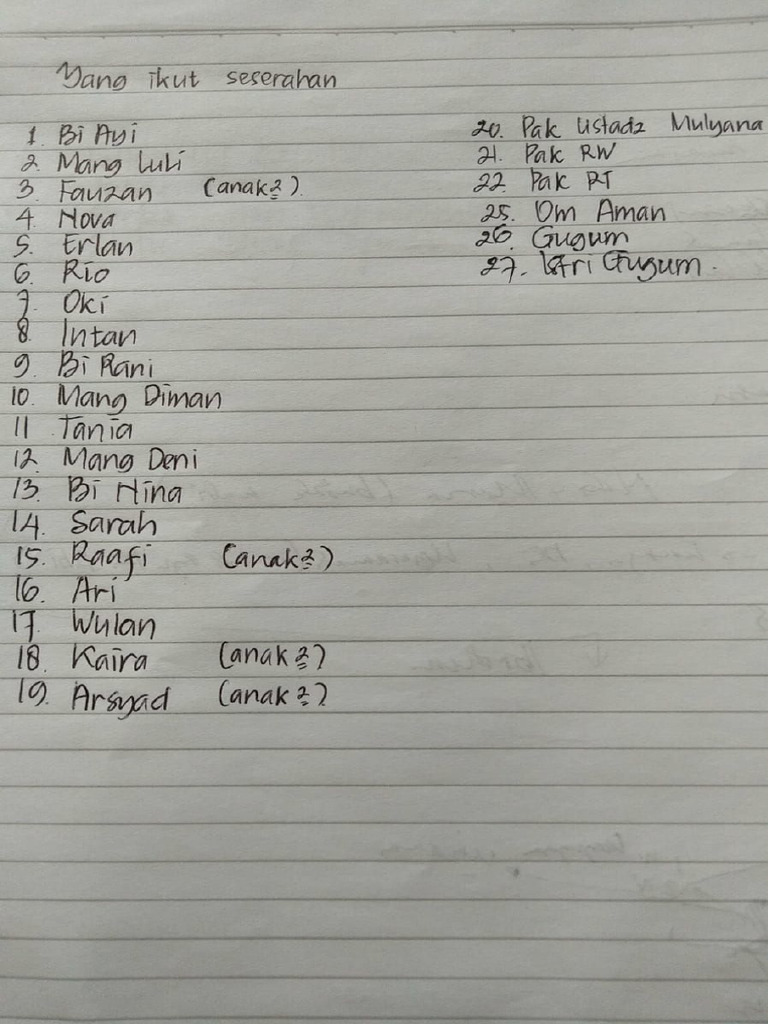 Yang ikut seserahan
1. Bi Ayi
2. Mang Luli
3. Fauzan (anak2).
4. Nova
5. Erlan
6. Rio
7. Oki
8. Intan
9. Bi Rani
10. Mang Diman
11. Tania
12. Mang Deni
13. Bi Nina
14. Sarah
15. Raafi (anak2)
16. Ari
17. Wulan
18. Kaira (anak2)
19. Arsyad (anak2)
20. Pak Ustadz Mulyana
21. Pak RW
22. Pak RT
25. Om Aman
26. Gugum
27. Istri Gugum.